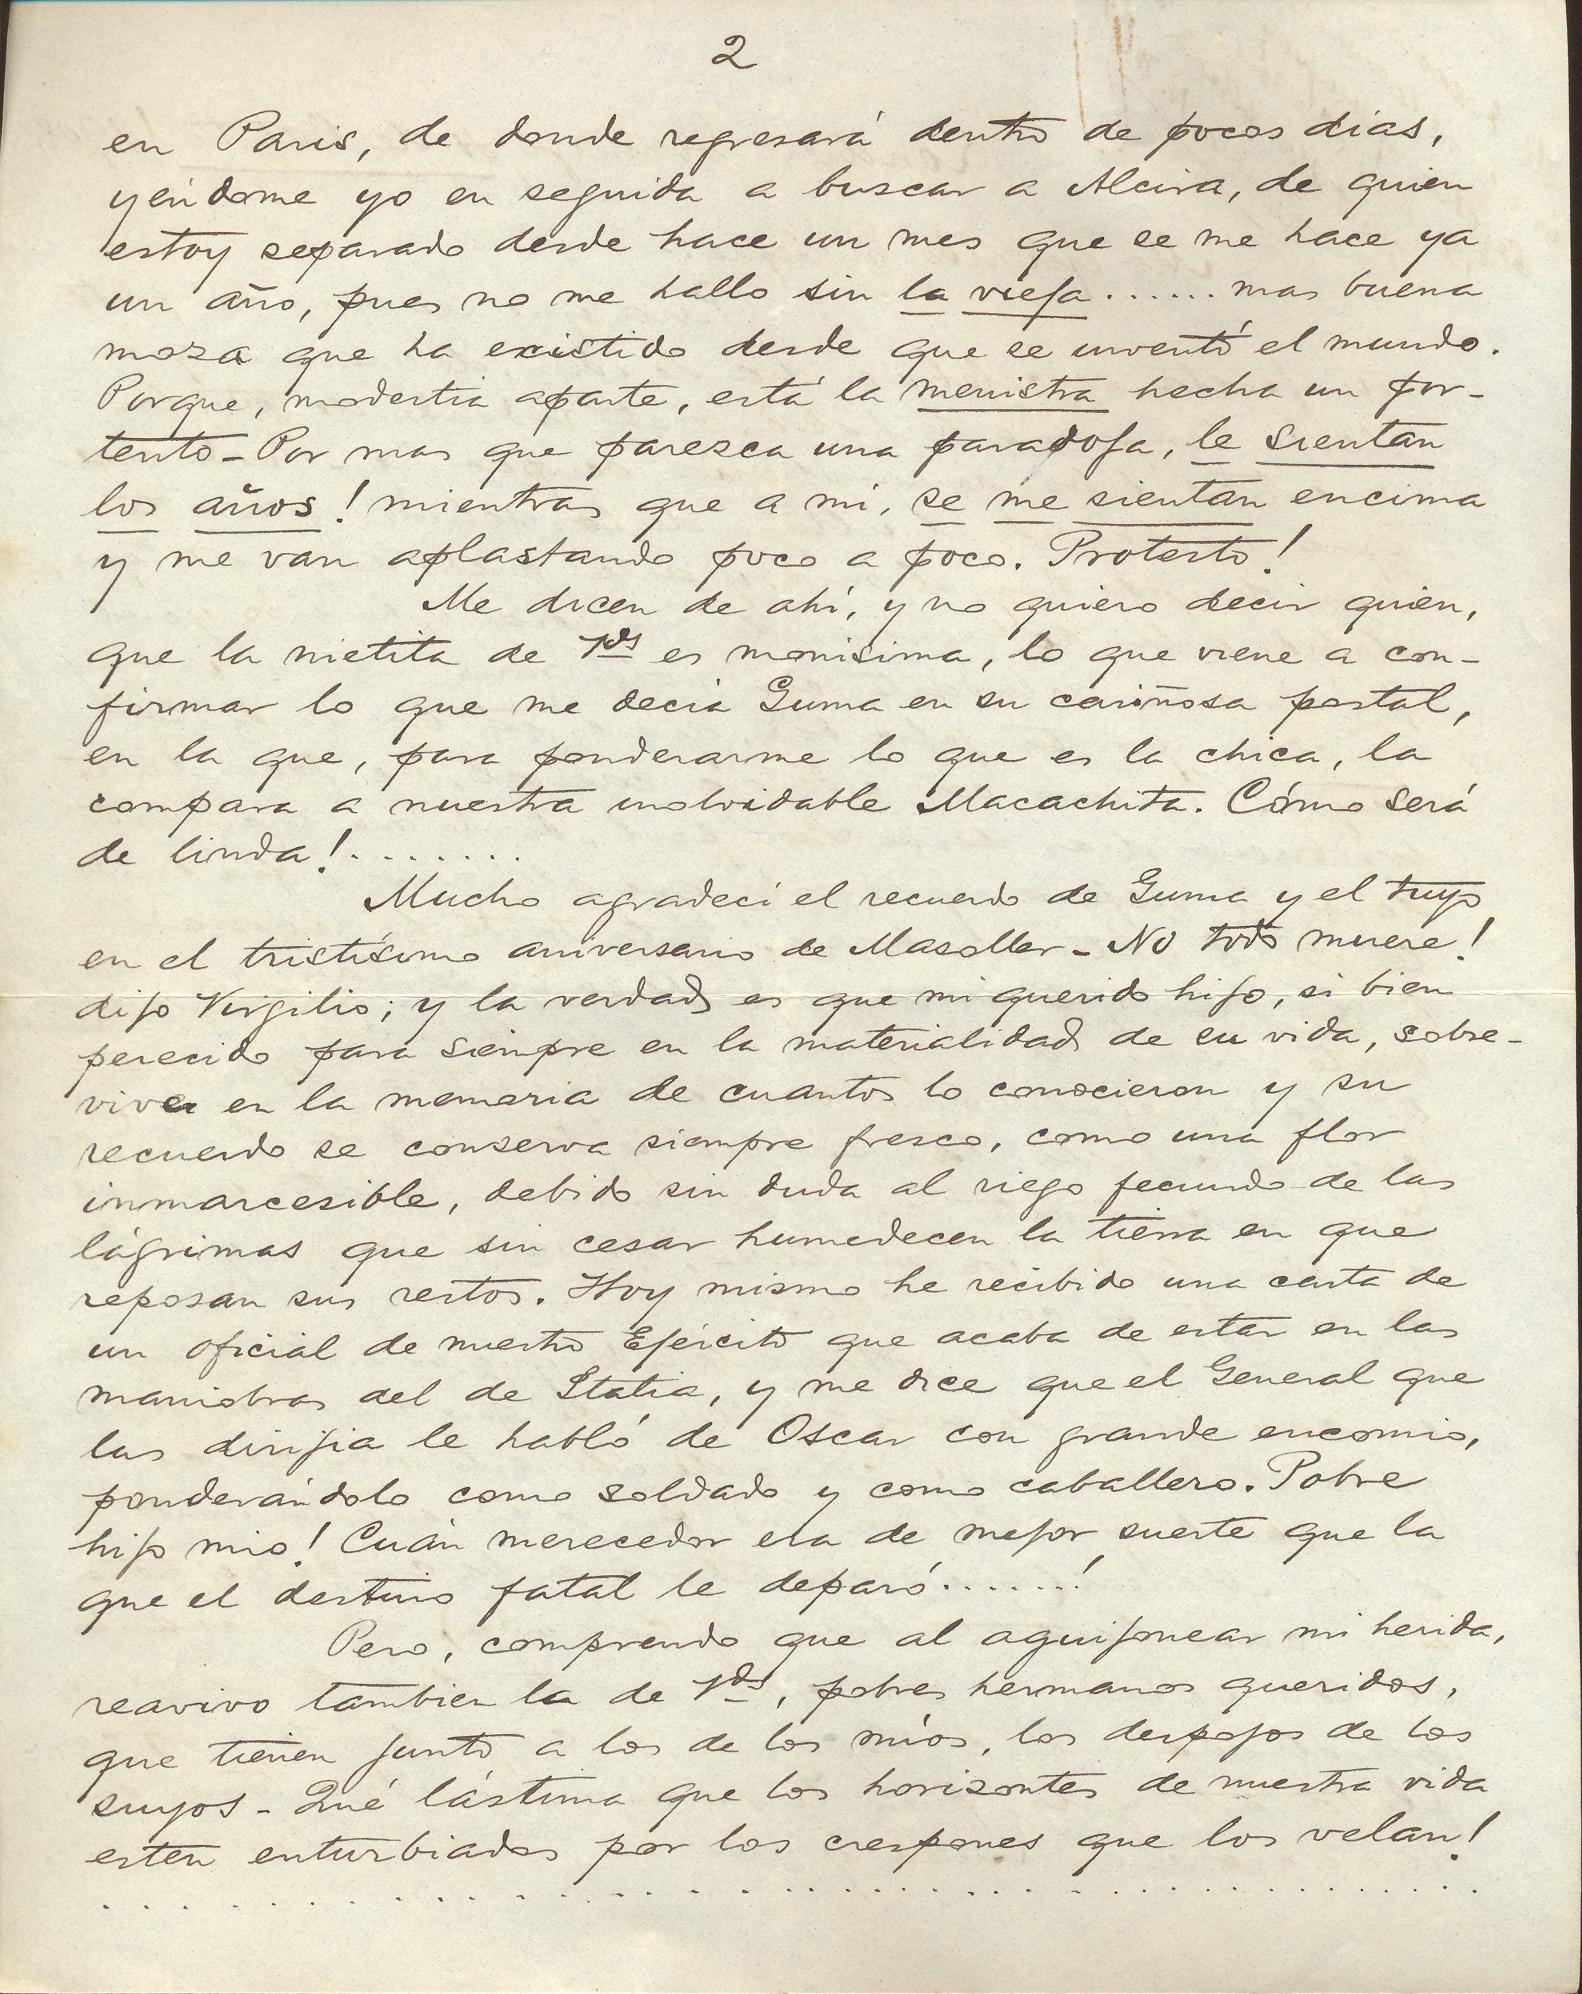 2
en Paris, de donde regresará dentro de pocos dias,
yéndome yo en seguida a buscar a Alcira, de quien
estoy separado desde hace un mes que se me hace ya
un año, pues no me hallo sin la vieja ...... mas buena
moza que ha existido desde que se inventó el mundo.
Porque, modestia aparte, está la menistra hecha un por-
tento - Por mas que parezca una paradoja, le sientan
los años! mientras que a mi, se me sientan encima
y me van aplastando poco a poco. Protesto!
Me dicen de ahí, y no quiero decir quién,
que la nietita de Vds es monisima, lo que viene a con-
firmar lo que me decia Guma en su cariñosa postal,
en la que, para ponderarme lo que es la chica, la
compara a nuestra inolvidable Macachita. Cómo será
de linda! ........
Mucho agradecí el recuerdo de Guma y el tuyo
en el tristísimo aniversario de Masoller - No todo muere!
dijo Virgilio; y la verdad es que mi querido hijo, si bien
perecido para siempre en la materialidad de su vida, sobre-
vive en la memoria de cuantos lo conocieron y su
recuerdo se conserva siempre fresco, como una flor
inmarcesible, debido sin duda al riego fecundo de las
lágrimas que sin cesar humedecen la tierra en que
reposan sus restos. Hoy mismo he recibido una carta de
un oficial de nuestro Ejército que acaba de estar en las
maniobras del de Italia, y me dice que el General que
las dirijia le habló de Oscar con grande encomio,
ponderándolo como soldado y como caballero. Pobre
hijo mio! Cuán merecedor era de mejor suerte que la
que el destino fatal le deparó.......!
Pero, comprendo que al aguijonear mi herida,
reavivo tambien la de Vds, pobres hermanos queridos,
que tienen junto a los de los míos, los despojos de los
suyos - Qué lástima que los horizontes de nuestra vida
estén enturbiados por los crespones que los velan!
. . . . . . . . . . . . . . . . . . . . . . . . . . . .